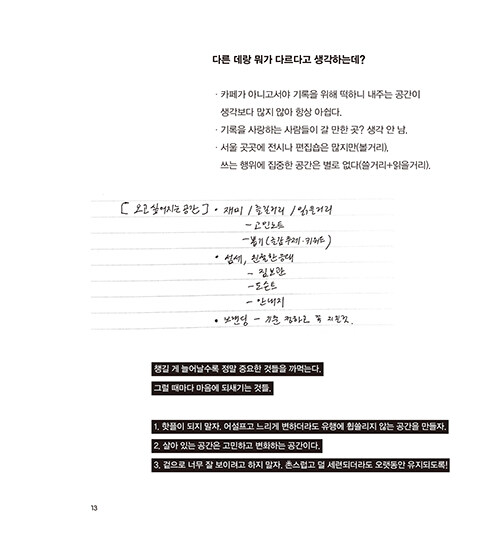 다른 데랑 뭐가 다르다고 생각하는데?
· 카페가 아니고서야 기록을 위해 떡하니 내주는 공간이
생각보다 많지 않아 항상 아쉽다.
· 기록을 사랑하는 사람들이 갈 만한 곳? 생각 안 남.
· 서울 곳곳에 전시나 편집숍은 많지만(볼거리),
쓰는 행위에 집중한 공간은 별로 없다(쓸거리+읽을거리).
[오고 싶어지는 공간] • 재미 / 즐길거리 / 읽을거리
- 고민노트
- 뽑기 (글감·주제·키워드)
• 섬세, 친절한 응대
- 짐보관
- 도슨트
- 안내지
• 브랜딩 -
챙길 게 늘어날수록 정말 중요한 것들을 까먹는다.
그럴 때마다 마음에 되새기는 것들.
1. 핫플이 되지 말자. 어설프고 느리게 변하더라도 유행에 휩쓸리지 않는 공간을 만들자.
2. 살아 있는 공간은 고민하고 변화하는 공간이다.
3. 겉으로 너무 잘 보이려고 하지 말자. 촌스럽고 덜 세련되더라도 오랫동안 유지되도록!
13